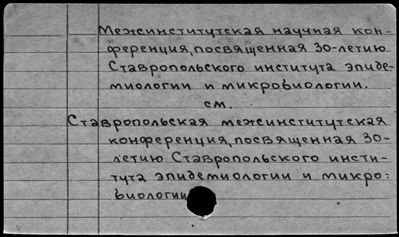 Межинститутская научная кон-
ференция, посвященная 30-летию
Ставропольского института эпиде-
миологии и микробиологии.
см.
Ставропольская межинститутская
конференция, посвященная 30-
летию Ставропольского инсти-
тута эпидемиологии и микро-
биологии